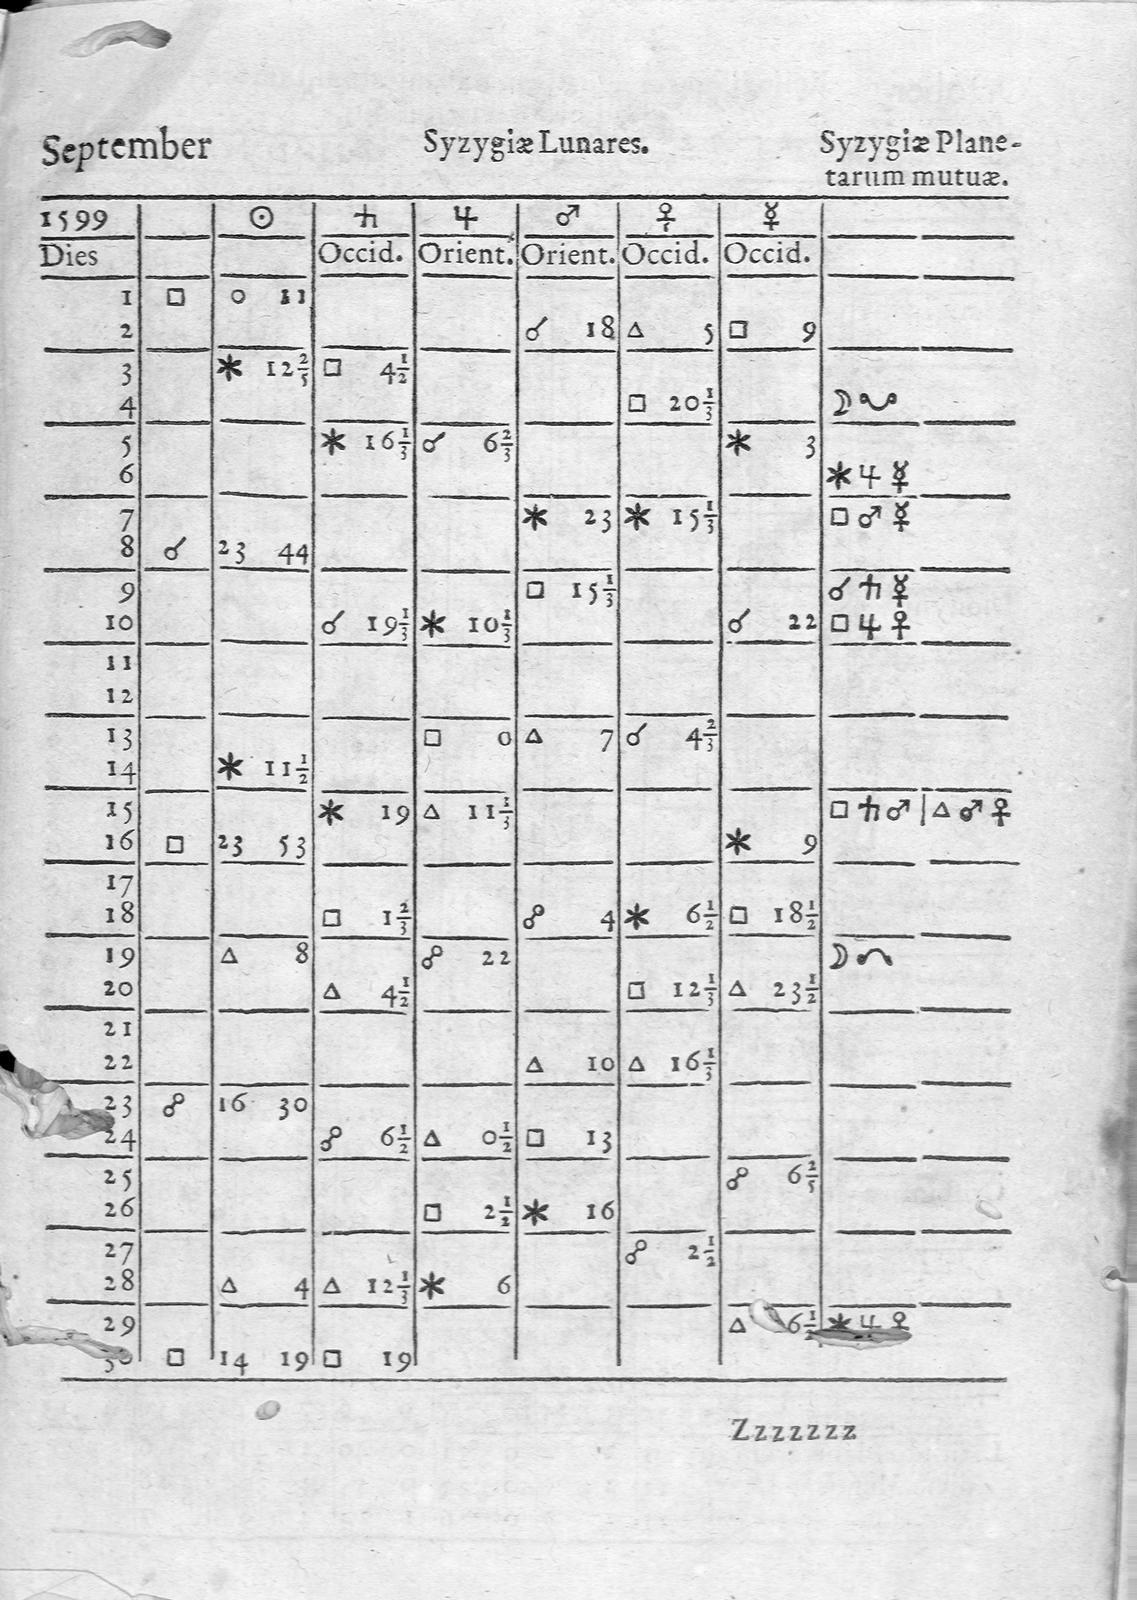 September Syzygiæ Lunares. Syzygiæ Plane-
tarum mutuæ.
1599 ☉ ♄ ♃ ♂ ♀ ☿
Dies Occid. Orient. Orient. Occid. Occid.
1 □ 0 11
2 ☌ 18 △ 5 □ 9
3 ✶ 12 2/5 □ 4 1/2
4 □ 20 1/3 ☽ ☋
5 ✶ 16 1/3 ☌ 6 2/3 ✶ 3
6 ✶ ♃ ☿
7 ✶ 23 ✶ 15 1/3 □ ♂ ☿
8 ☌ 23 44
9 □ 15 1/3 ☌ ♄ ☿
10 ☌ 19 1/3 ✶ 10 1/3 ☌ 22 □ ♃ ♀
11
12
13 □ 0 △ 7 ☌ 4 2/3
14 ✶ 11 1/2
15 ✶ 19 △ 11 1/3 □ ♄ ♂ | △ ♂ ♀
16 □ 23 53 ✶ 9
17
18 □ 1 2/3 ☍ 4 ✶ 6 1/2 □ 18 1/2
19 △ 8 ☍ 22 ☽ ☊
20 △ 4 1/2 □ 12 1/3 △ 23 1/2
21
22 △ 10 △ 16 1/3
23 ☍ 16 30
24 ☍ 6 1/2 △ 0 1/2 □ 13
25 ☍ 6 2/5
26 □ 2 1/2 ✶ 16
27 ☍ 2 1/2
28 △ 4 △ 12 1/3 ✶ 6
29 △ 6 1/2 ✶ ♃ ♀
30 □ 14 19 □ 19
Zzzzzzz